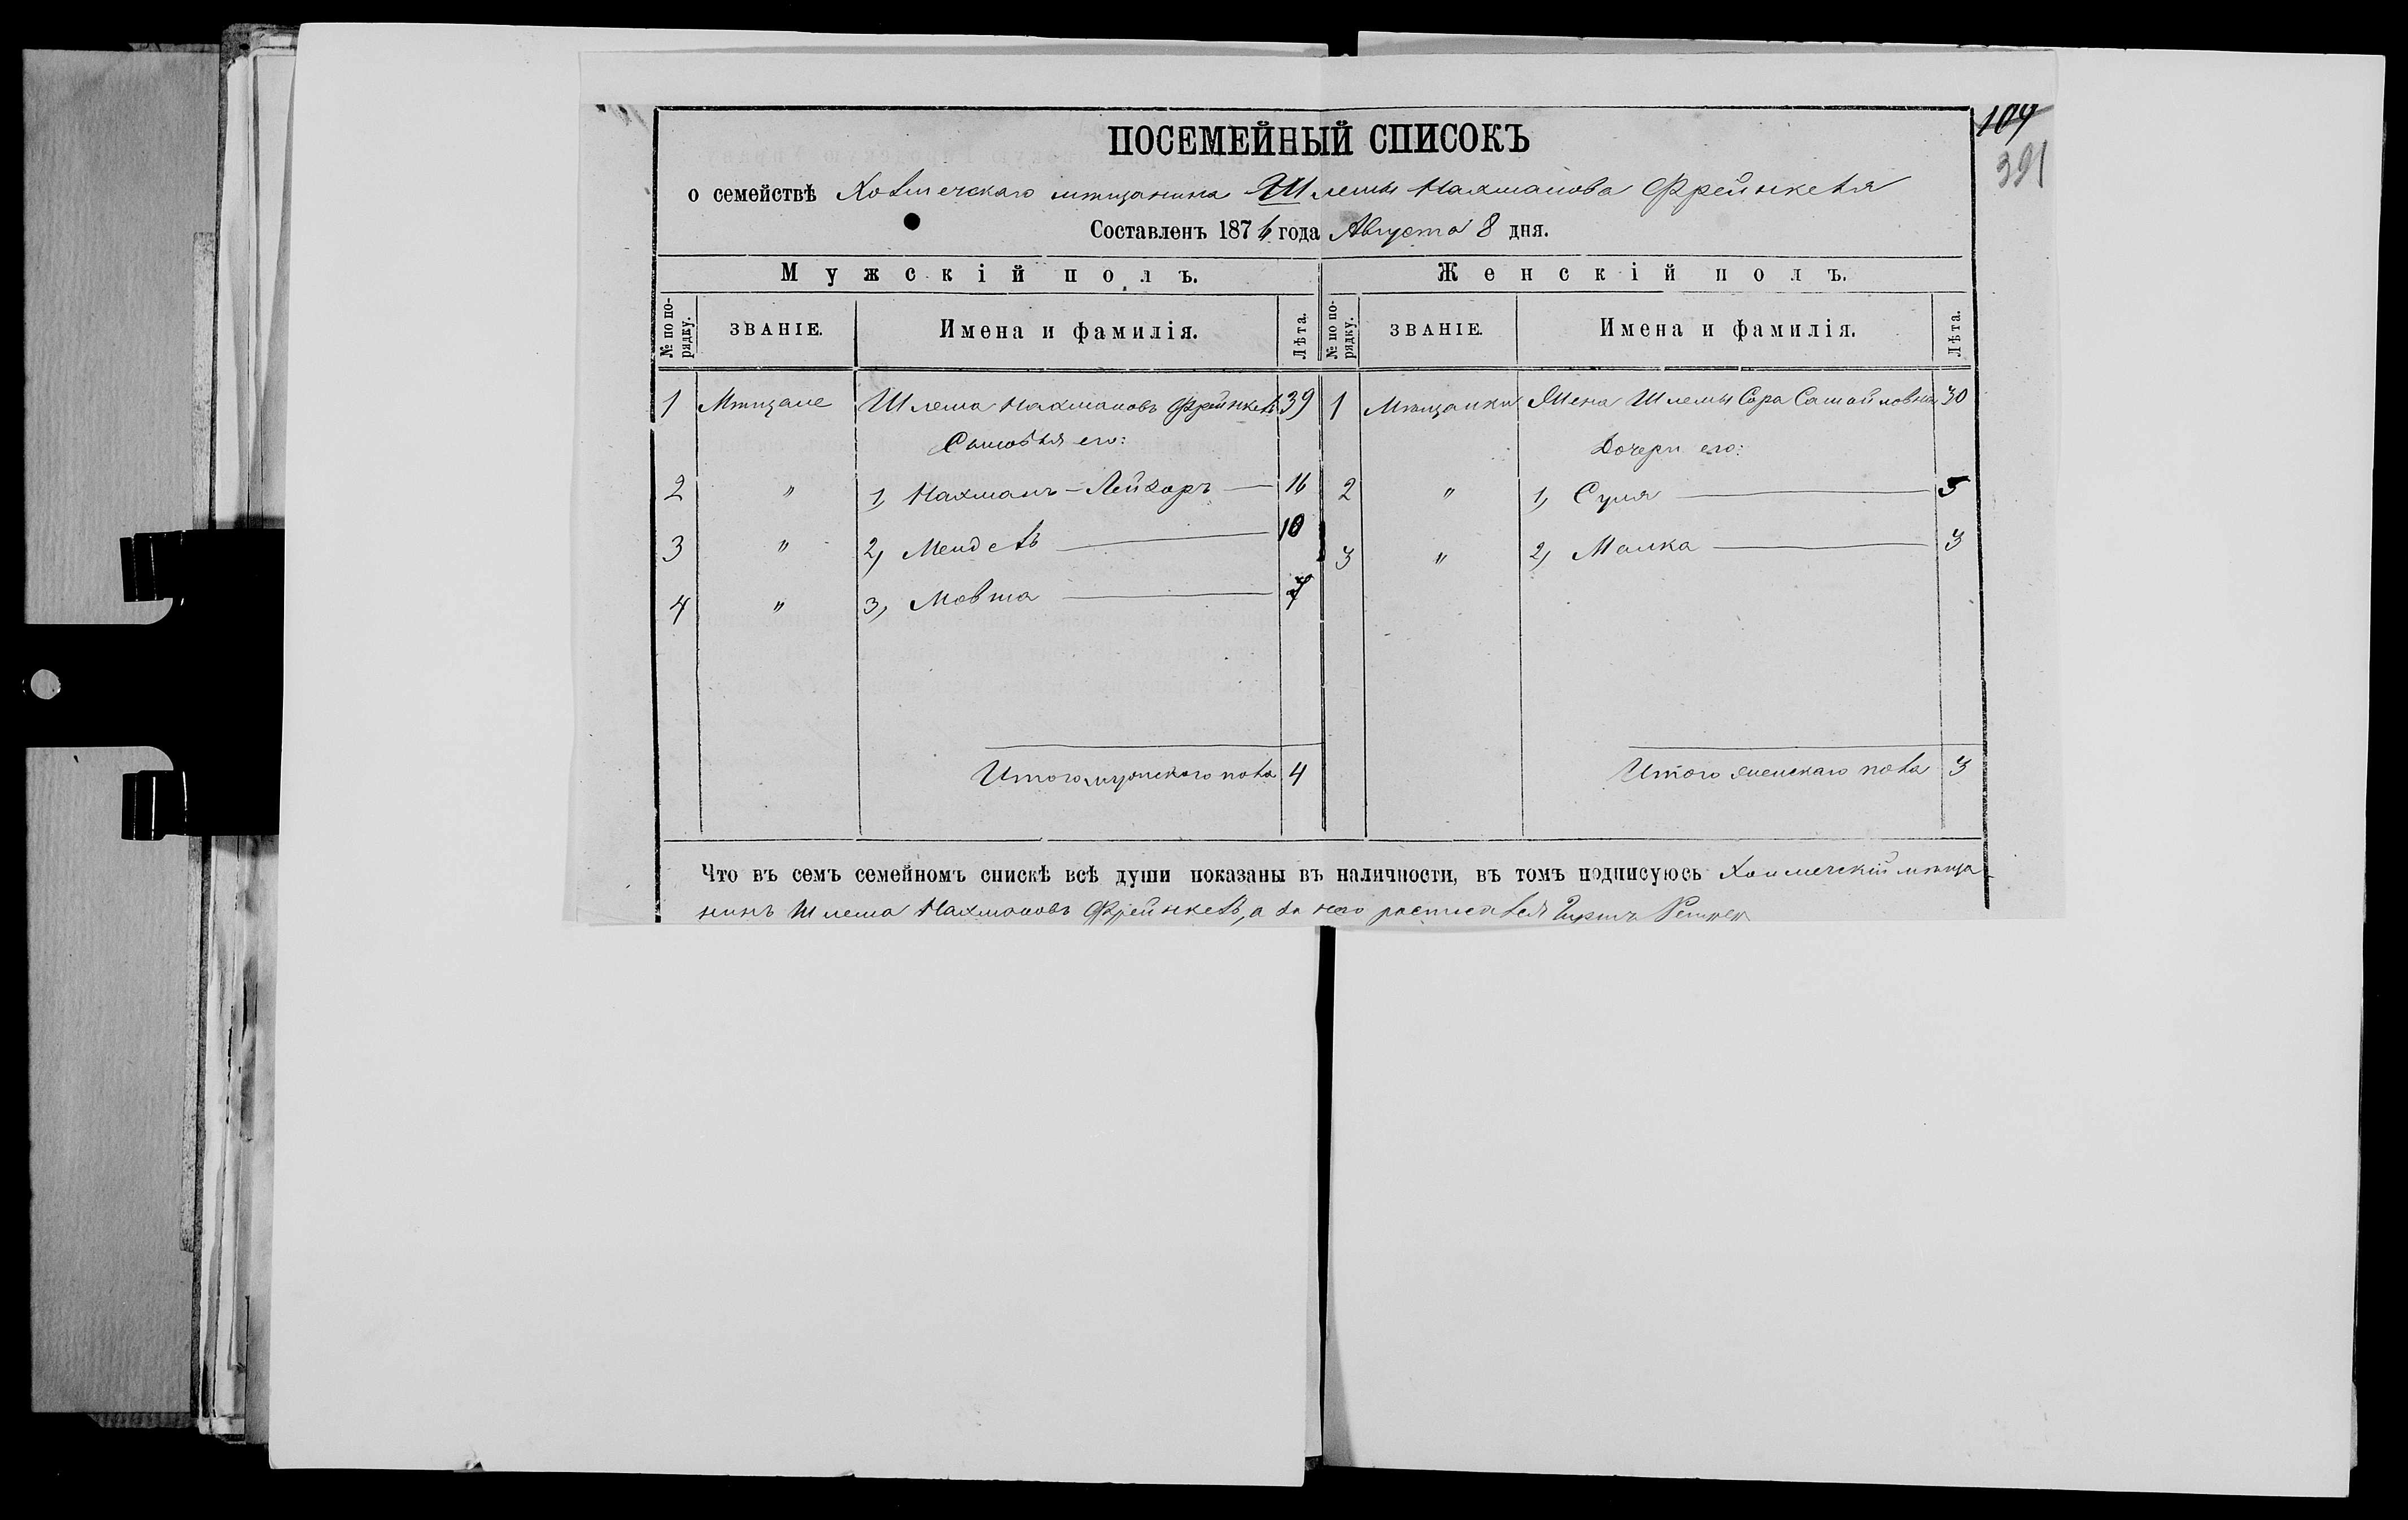 109
391
ПОСЕМЕЙНЫЙ СПИСОКЪ
о семействѣ Холмечскаго мѣщанина Шлемы Нахманова Френкеля
Составленъ 1874 года Августа 8 дня.
Мужскій полъ. Женскій полъ.
№ по порядку. ЗВАНІЕ. Имена и фамилія. Лѣта. № по порядку. ЗВАНІЕ. Имена и фамилія. Лѣта.
1 Мѣщане Шлема Нахмановъ Фрейнкель 39 1 Мѣщанки Жена Шлемы Сора Самойловна 30
Сыновья его: Дочери его:
2 " 1, Нахманъ-Лейзоръ — 16 2 " 1, Суля — 5
3 " 2, Мендель — 10 3 " 2, Малка — 3
4 " 3, Мовша — 7
Итого мужескаго пола 4 Итого женскаго пола 3
Что въ семъ семейномъ спискѣ всѣ души показаны въ наличности, въ томъ подписуюсь Холмечскій мѣща-
нинъ Шлема Нахмановъ Фрейнкель, а за него росписался Гиршъ